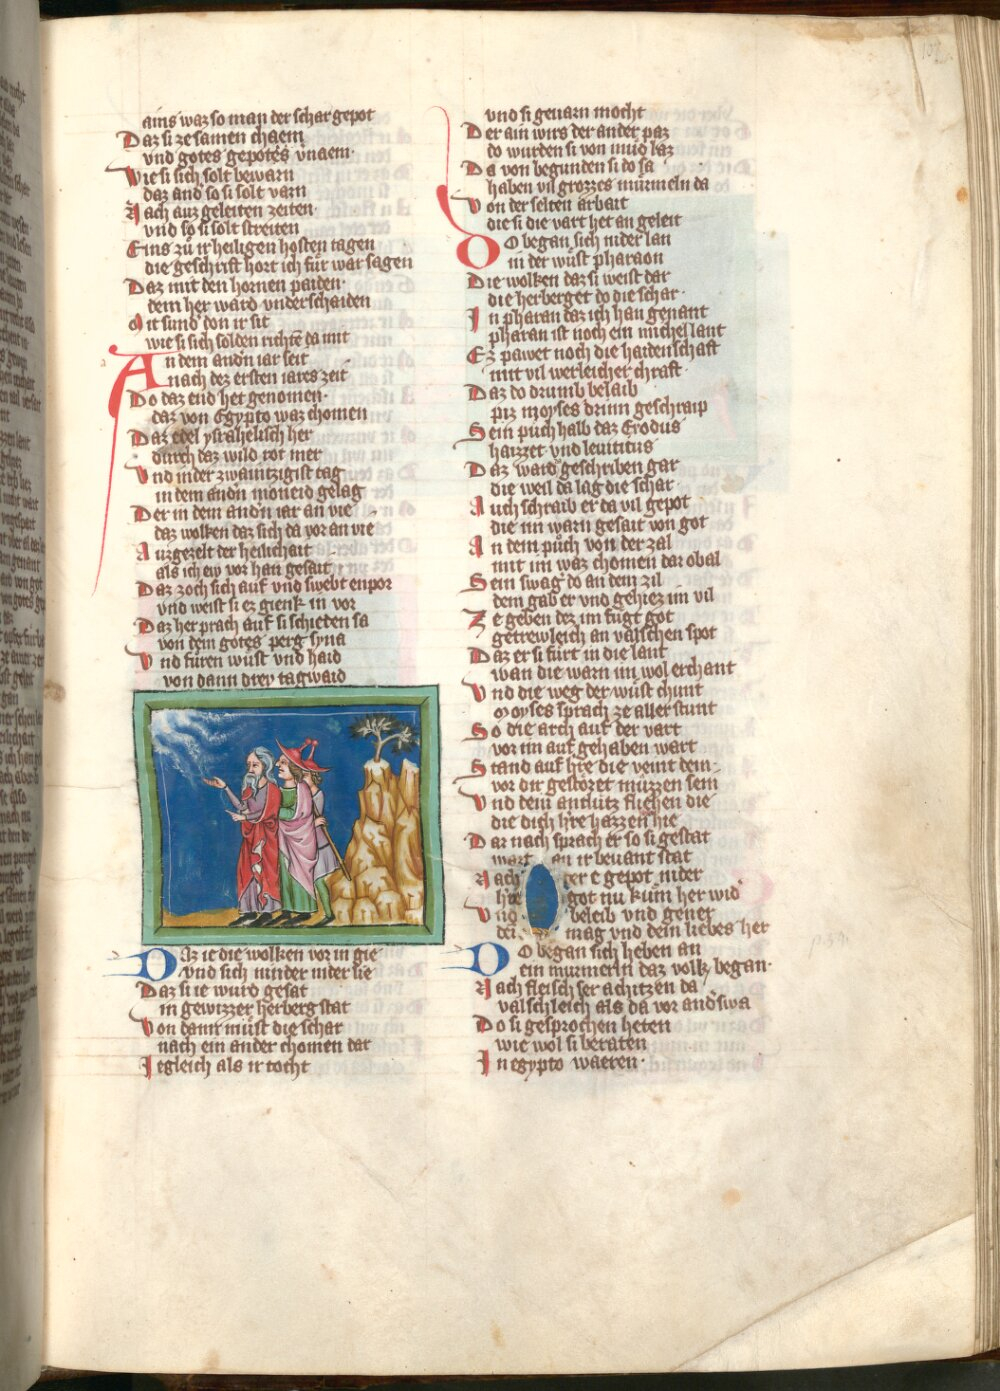 ains waz so man der schar gepot
Daz si ze samen chaem
vnd gotes gepotes vnaem
Wie si sich solt bewarn
daz and so si solt varn
Nach auz geleiten zeiten
vnd so si solt streiten
Eins zů ir heiligen hosten tagen
die geschrift hort ich fur war sagen
Daz mit den hornen paiden
dem her ward vnderschaiden
Mit sund don ir sit
wie si sich solden richtē da mit
An dem andn iar seit
nach dez ersten iares zeit
Do daz end het genomen
daz von Egypto waz chomen
Daz edel ysrahelisch her
durch daz wild rot mer
Vnd inder zwaintzigist tag
in dem andn moneid gelag
Der in dem andn iar an vie
daz wolken daz sich da vor an vie
Auzgezelt der heilichait
als ich ew vor han gesait
Daz zoch sich auf vnd swebt enpor
vnd weist si ez gienk in vor
Daz her prach auf si schieden sa
von dem gotes perg syna
Vnd furen wust vnd haid
von dann drey tagwaid
Daz ie die wolken vor in gie
vnd sich minder nider lie
Daz si ie wurd gesat
in gewizzer herberg stat
Von dann must die schar
nach ein ander chomen dar
Iegleich als ir tocht
vnd si geuarn mocht
Der ain wirs der ander paz
do wurden si von mud laz
Da von begunden si do sa
haben vil grozzes murmeln da
Von der selten arbait
die si die vart het an geleit
Do began sich nider lan
in der wust pharaon
Die wolken daz si weist dar
die herberget do die schar
In pharan daz ich han genant
pharan ist noch ein michel lant
Ez pawet noch die haidenschaft
mit vil werleicher chraft
Daz do drumb belaib
piz moyses drinn geschraip
Sein puch halb daz Erodus
haizzet vnd leuiticus
Daz ward geschriben gar
die weil da lag die schar
Auch schraib er da vil gepot
die im warn gesait von got
An dem půch von der zal
mit im waz chomen dar obal
Sein swag do an dem zil
dem gab er vnd gehiez im vil
Ze geben dez im fugt got
getrewleich an valschen spot
Daz er si furt in die lant
wan die warn im wol erchant
Vnd die weg der wust chunt
Moyses sprach ze aller stunt
So die arch auf der vart
vor im auf gehaben wart
Stand auf hre die veint dein
vor dir gestoret muzzen sein
Vnd dein antlutz fliehen die
die dich hre hazzen hie
Dar nach sprach er so si gestat
wart an ir bewant stat
Nach der e gepot nider
hre got nu kum her wid
Vnd beleib vnd gener
dei mag vnd dein liebes her
Do began sich heben an
ein murmerln daz volk began
Nach fleisch ser achitzen da
valschleich als da vor andswa
Do si gesprochen heten
wie wol si beraten
In egypto waeren